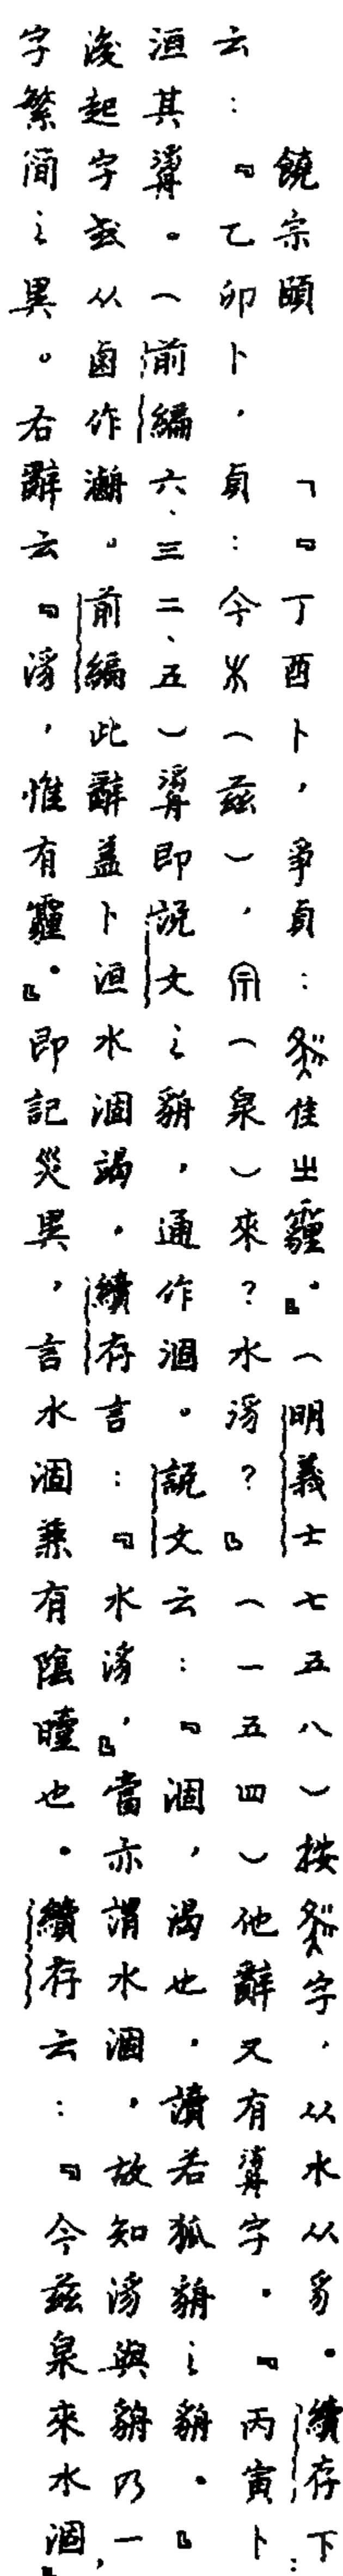 饒宗頤　　「『丁酉卜，爭貞：隹㞢霾。』（明義士七五八）按字，从水从豸。續存下
云：『乙卯卜，貞：今（茲），（泉）來？水㴊？』（一五四）他辭又有字。『丙寅卜：
洹其。（前編六、三二、五）即說文之貈，通作涸。說文云：『涸，渴也，讀若狐貈之貈。』
後起字或从鹵作瀭。前編此辭蓋卜洹水涸竭，續存言：『水㴊』，當亦謂水涸，故知㴊與貈乃一
字繁簡之異。右辭云『㴊，惟有霾。』即記災異，言水涸兼有陰曀也。續存云：『今茲泉來水涸』，